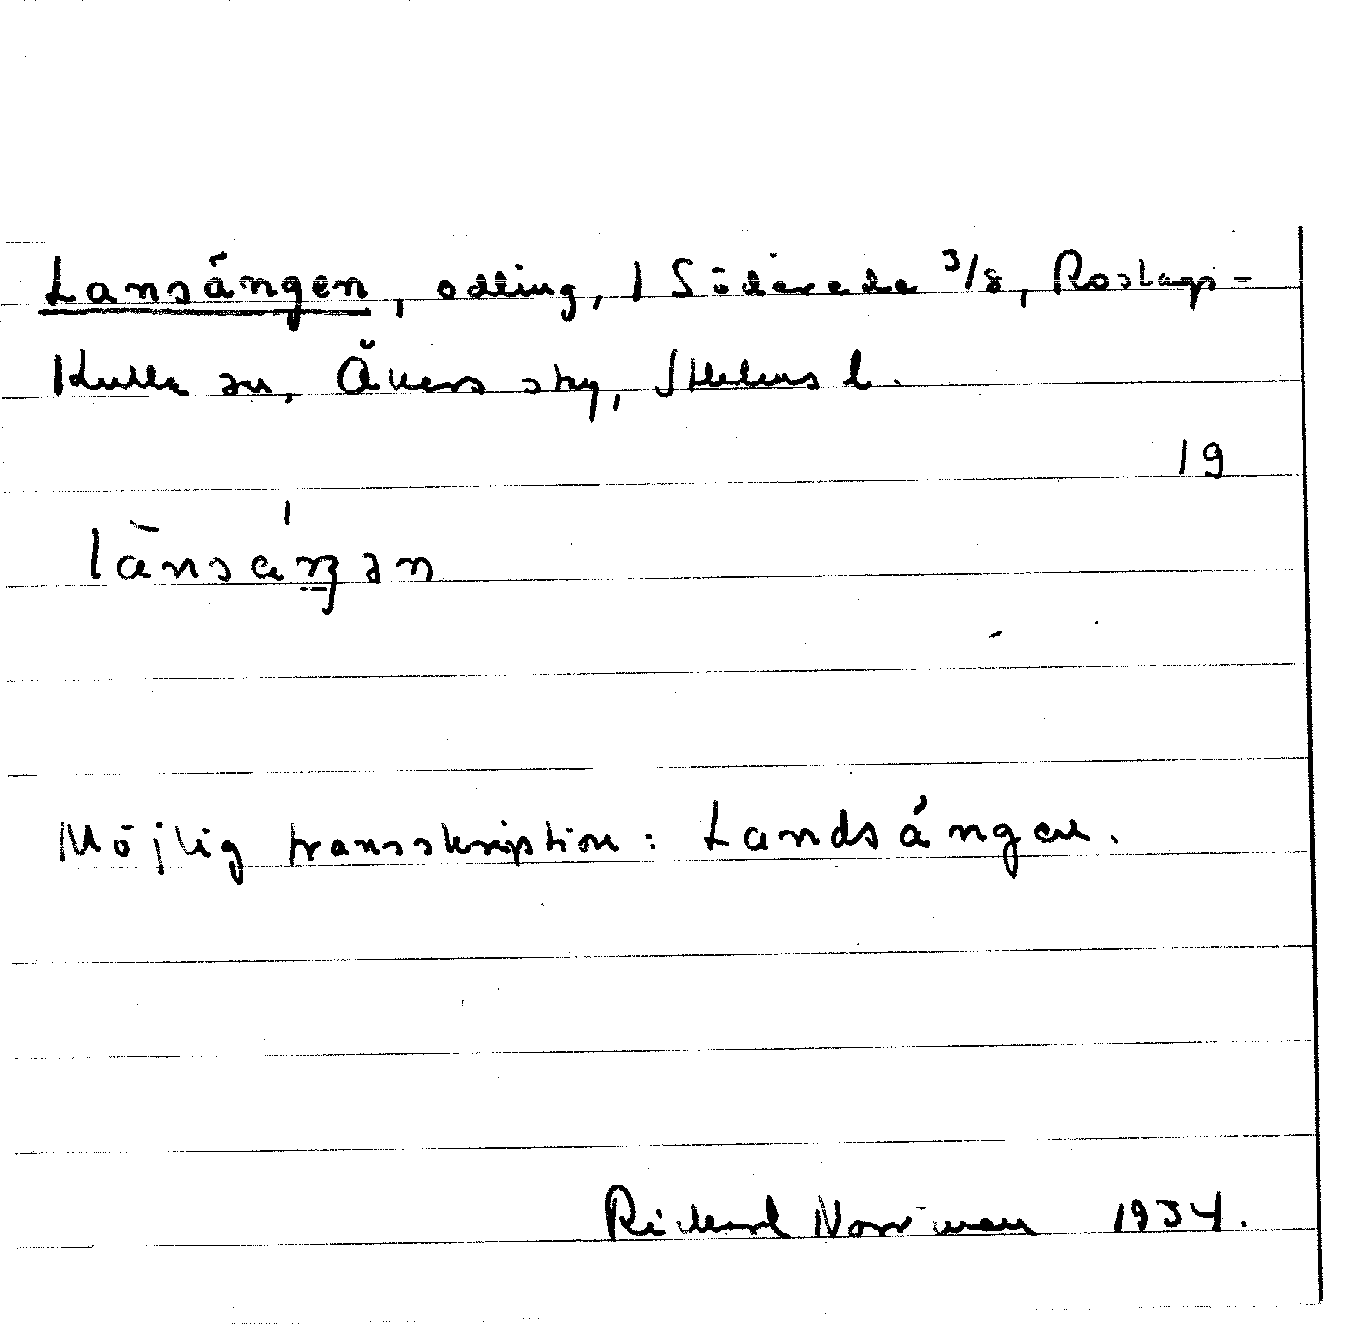 Lansängen, odling, / Söderede 3/8, Roslags-
Kulla sn, Åkers skg, Sthlms l.
19
lànsáŋən
Möjlig transskription: Landsängen.
Rickard Norrman 1934.